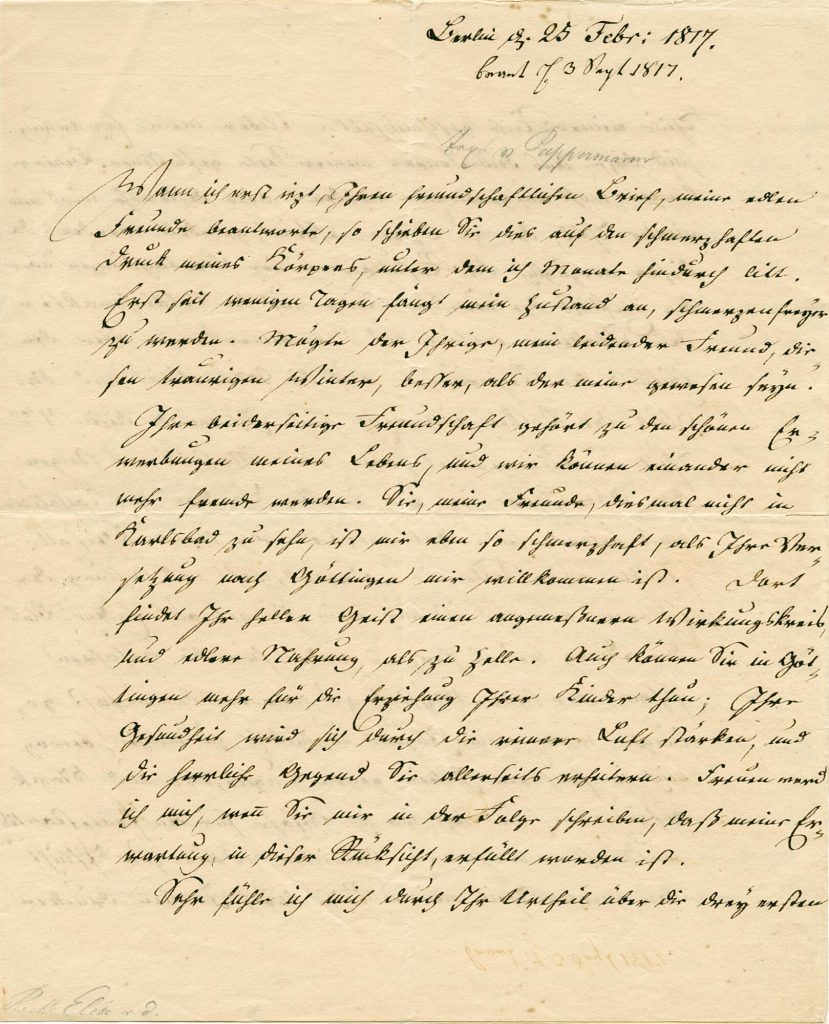 Berlin d. 25 Febr: 1817.
beant d. 3 Sept 1817.
Wann ich erst iezt, Ihren freundschaftlichen Brief, meine edlen
Freunde beantworte, so schieben Sie dies auf den schmerzhaften
Druck meines Körpers, unter dem ich Monate hindurch litt.
Erst seit wenigen Tagen fängt mein Zustand an, schmerzenfreyer
zu werden. Mögte der Ihrige, mein leidender Freund, die-
sen traurigen Winter, besser, als der meine gewesen seyn.
Ihre beiderseitige Freundschaft gehört zu den schönen Er-
werbungen meines Lebens, und wir können einander nicht
mehr fremde werden. Sie, meine Freunde, diesmal nicht in
Karlsbad zu sehn, ist mir eben so schmerzhaft, als Ihre Ver-
setzung nach Göttingen mir willkommen ist. Dort
findet Ihr heller Geist einen angemeßnern Wirkungskreis,
und edlere Nahrung, als zu Zelle. Auch können Sie in Göt-
tingen mehr für die Erziehung Ihrer Kinder thun; Ihre
Gesundheit wird sich durch die reinere Luft stärken, und
die herrliche Gegend Sie allerseits erheitern. Freuen werd
ich mich, wenn Sie mir in der Folge schreiben, daß meine Er-
wartung, in dieser Rücksicht, erfüllt worden ist.
Sehr fühle ich mich durch Ihr Urtheil über die drey ersten